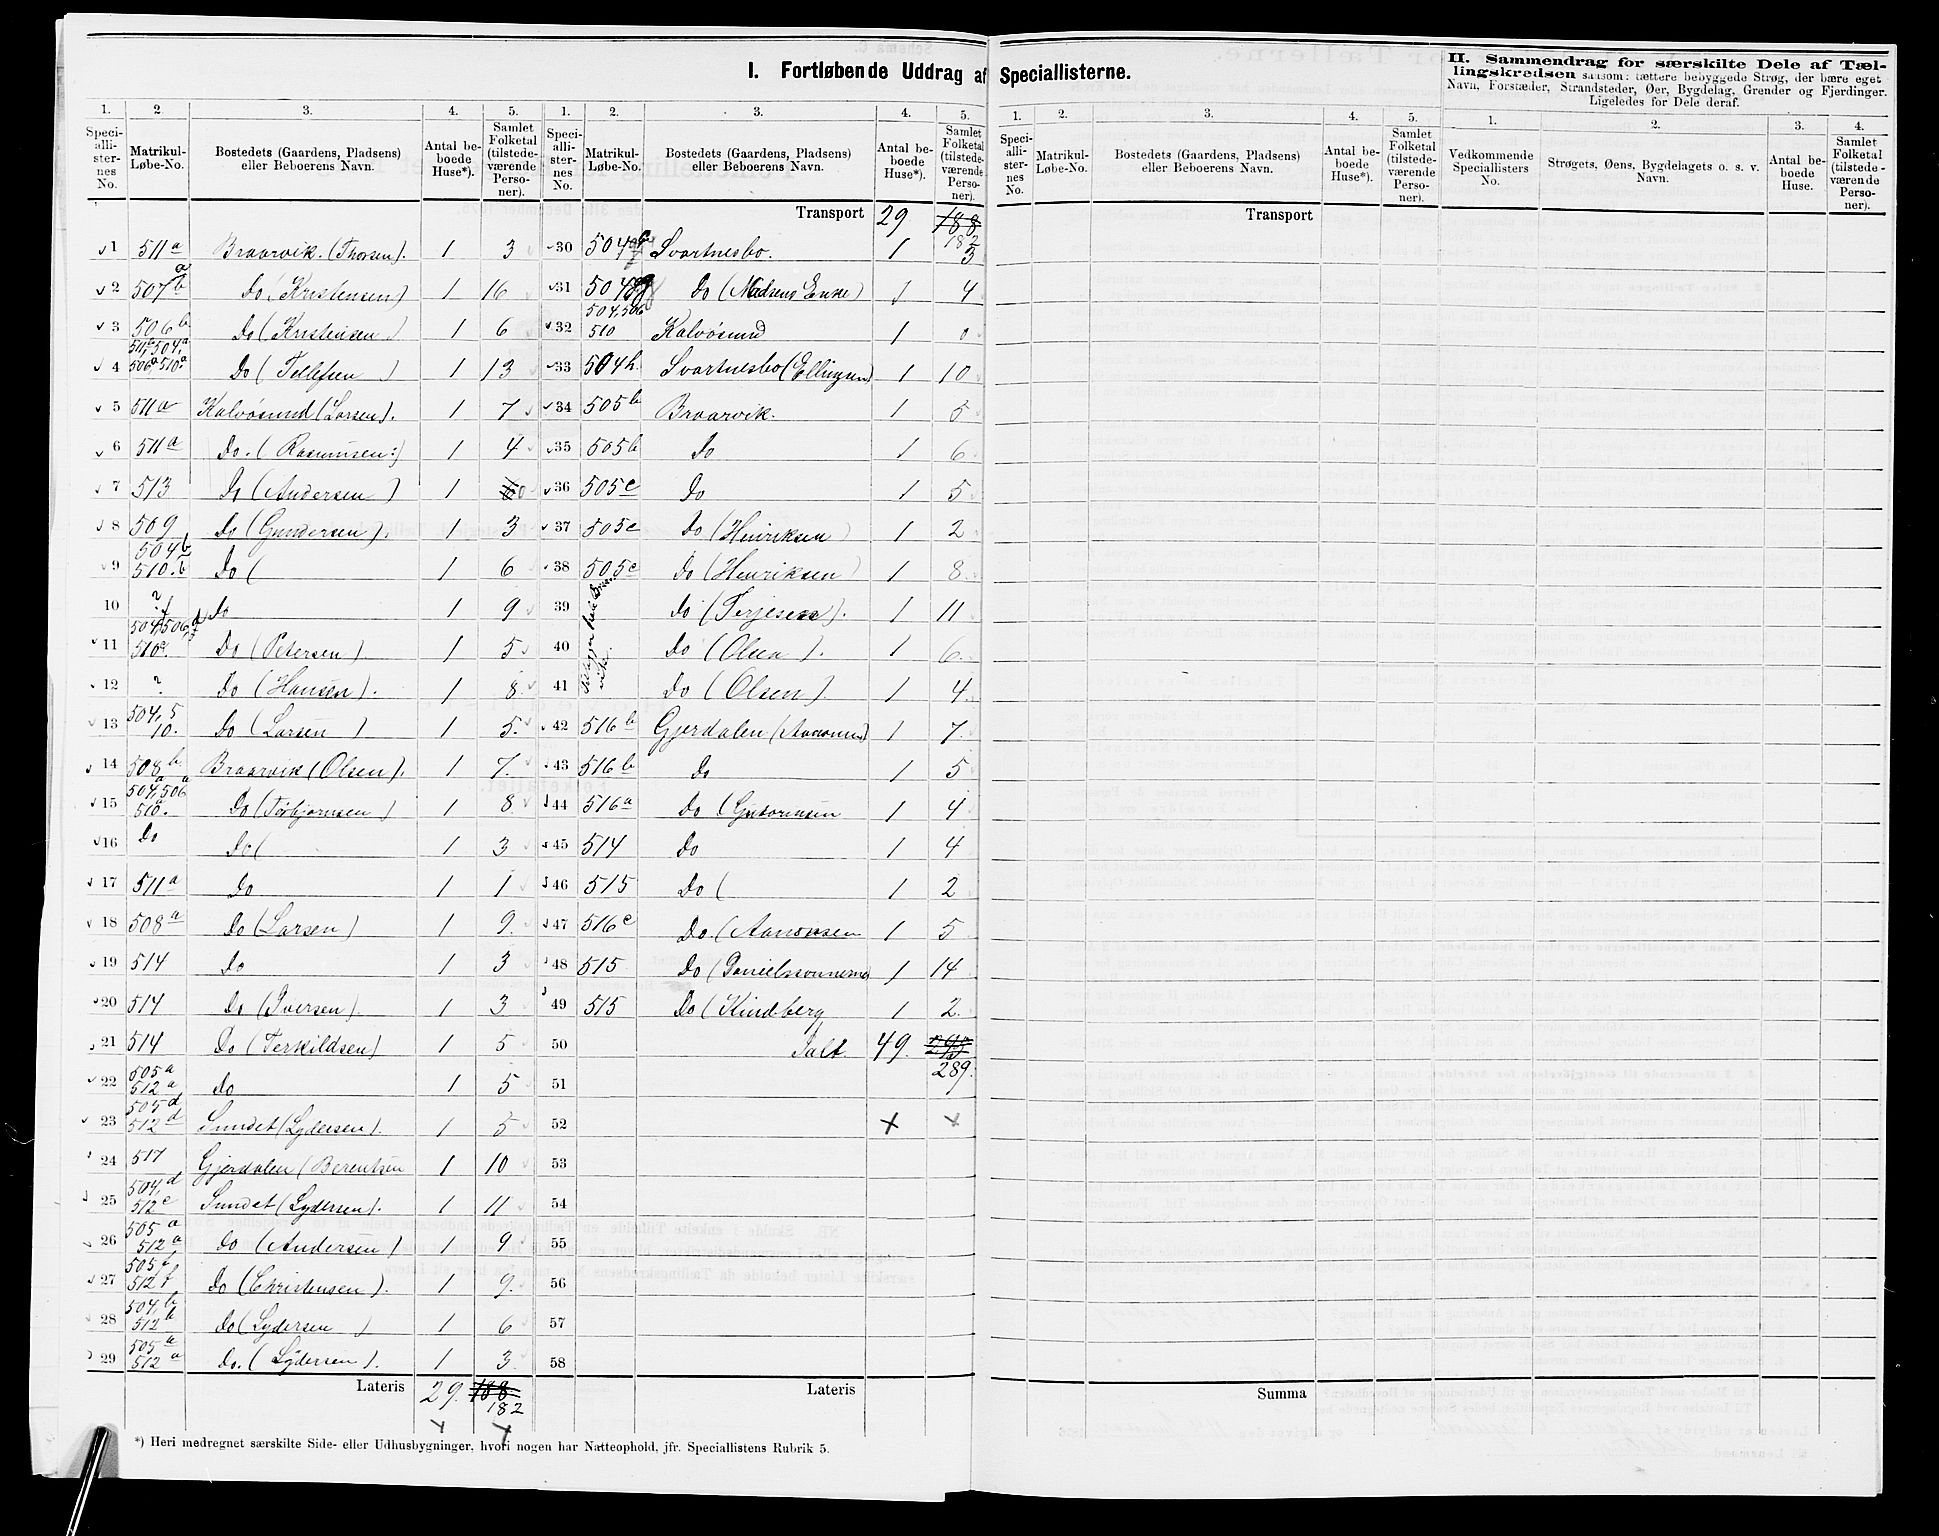 I. Fortløbende Uddrag af Speciallisterne.
II. Sammendrag for særskilte Dele af Tællingskredsen saasom: tættere bebyggede Strøg, der bære eget
Navn, Forstæder, Strandsteder, Øer, Bygdelag, Grender og Fjerdinger.
Ligeledes for Dele deraf.
1. 2 3. 4. 5. 1. 2. 3. 4. 5.
Speciallisternes No. Matrikul-Løbe-No. Bostedets (Gaardens, Pladsens) eller Beboerens Navn. Antal beboede Huse*). Samlet Folketal (tilstedeværende Personer).
Speciallisternes No. Matrikul-Løbe-No. Bostedets (Gaardens, Pladsens) eller Beboerens Navn. Antal beboede Huse*). Samlet Folketal (tilstedeværende Personer).
1 511a Braarvik. (Thorsen). 1 3
2 507 a b Do (Kristensen) 1 16
3 506b Do (Kristensen) 1 6
4 511a 504a 506a 510a Do (Tellefsen) 1 13
5 511a Kalvøsund (Larsen). 1 7
6 511a Do. (Rasmusen:) 1 4
7 513 Do (Andersen) 1 0
8 509 Do (Gundersen). 1 3
9 504b 510.b Do ( 1 6
10 ? Do 1 9
11 504, 506, 510 Do (Petersen) 1 5
12 ? Do (Hansen). 1 8
13 504, 5 10. Do (Larsen) 1 5.
14 508b Braarvik (Olsen). 1 7.
15 504a, 506a 510a. Do (Torbjørnsen) 1 8
16 Do Do ( 1 3
17 511a Do 1 1
18 508a Do (Larsen) 1 9.
19 514 Do 1 3
20 514 Do (Iversen). 1 3
21 514 Do (Terkildsen) 1 5
22 505a 512a Do 1 5
23 505d 512d Sundet (Lydersen). 1 5
24 517 Gjerdalen (Berentsen 1 10
25 504,d 512e Sundet (Lydersen). 1 11
26 505a 512a Do (Andersen) 1 9
27 505f 512f Do (Christensen). 1 9.
28 504,b 512b Do (Lydersen) 1 6
29 505a 512a Do. (Lydersen). 1 3.
Lateris 29. 188 182
Transport 29 188 182
30 504 Svartnesbo. 1 3
31 504 Do (Madsens Enke) 1 4
32 504, 506 510 Kalvøsund 1 0
33 504h. Svartnesbo (Ellingsen) 1 10
34 505b Braarvik. 1 5
35 505b Do 1 6
36 505c Do 1 5
37 505c Do (Henriksen) 1 2
38 505c Do (Henriksen) 1 8.
39 Do (Terjesen). 1 11
40 Do (Olsen). 1 6.
41 Do (Olsen). 1 4
42 516b Gjerdalen (Aanonsen) 1 7.
43 516b Do 1 5
44 516a Do (Guttormsen 1 4
45 514 Do 1 4
46 515 Do ( 1 2
47 516c Do. (Aanonsen 1 5
48 515 Do (Danielssønnerne) 1 14
49 515 Do (Kindberg 1 2.
50 Ialt 49. 289.
51
52
53
54
55
56
57
58
Lateris
*) Heri medregnet særskilte Side- eller Udhusbygninger, hvori nogen har Natteophold, jfr. Speciallistens Rubrik 5.
1. 2. 3. 4. 5. 1. 2. 3. 4.
Speciallisternes No. Matrikul-Løbe-No. Bostedets (Gaardens, Pladsens) eller Beboerens Navn. Antal beboede Huse*). Samlet Folketal (tilstedeværende Personer).
Vedkommende Speciallisters No. Strøgets, Øens, Bygdelagets o. s. v. Navn. Antal beboede Huse. Samlet Folketal (tilstedeværende Personer).
Transport
Summa